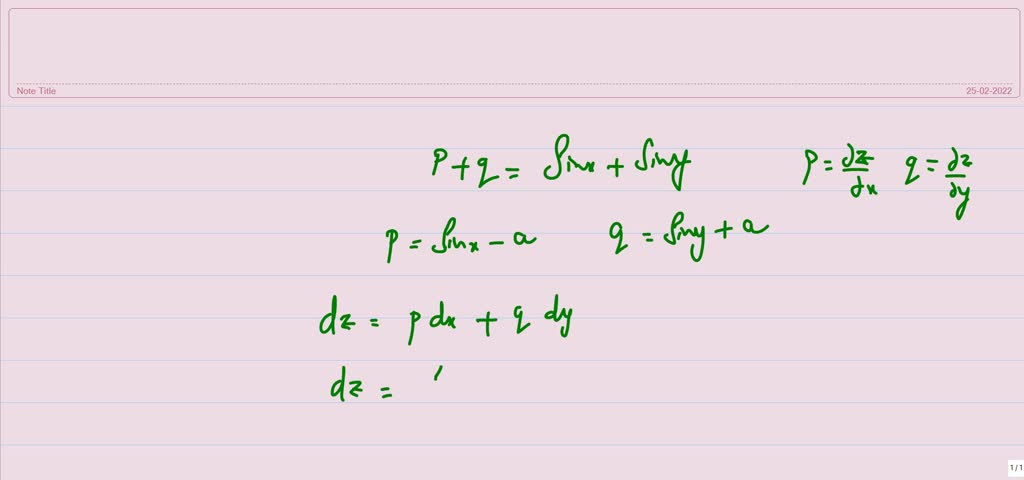 Note Title 25-02-2022
p + q = Sinx + Siny p = ∂z/∂x q = ∂z/∂y
p = Sinx - a q = Siny + a
dz = p dx + q dy
dz =
1 / 1